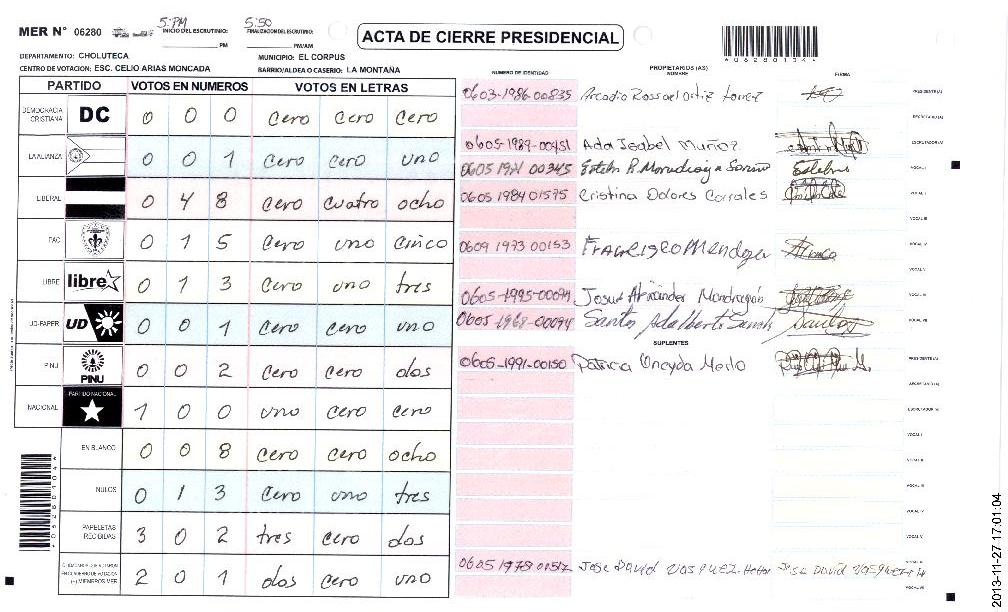 MER N° 06280
5:PM
INICIO DEL ESCRUTINIO:
PM
5:50
FINALIZACION DEL ESCRUTINIO:
PM/AM
ACTA DE CIERRE PRESIDENCIAL
DEPARTAMENTO: CHOLUTECA
MUNICIPIO: EL CORPUS
CENTRO DE VOTACION: ESC. CELIO ARIAS MONCADA
BARRIO/ALDEA O CASERIO: LA MONTAÑA
PARTIDO VOTOS EN NUMEROS VOTOS EN LETRAS
DEMOCRACIA CRISTIANA DC 0 0 0 cero cero cero
LA ALIANZA 0 0 1 cero cero uno
LIBERAL 0 4 8 cero cuatro ocho
PAC 0 1 5 cero uno cinco
LIBRE libre 0 1 3 cero uno tres
UD-FAPER UD 0 0 1 cero cero uno
PINU PINU 0 0 2 cero cero dos
NACIONAL PARTIDO NACIONAL 1 0 0 uno cero cero
EN BLANCO 0 0 8 cero cero ocho
NULOS 0 1 3 cero uno tres
PAPELETAS RECIBIDAS 3 0 2 tres cero dos
2 0 1 dos cero uno
NUMERO DE IDENTIDAD
PROPIETARIOS (AS)
NOMBRE
FIRMA
0603-1986-00835 Arcadio
PRESIDENTE(A)
SECRETARIO(A)
0605-1989-00451 Ada Isabel Muñoz
ESCRUTADOR(A)
0605 1971 00345
VOCAL I
0605 1984 01575 Cristina Dolores Corrales
0609 1973 00153 Francisco Mendoza
0605-1995-00094 Josue Alexander Mondragón
0605-1968-00094 Santos Adalberto
SUPLENTES
0605-1991-00150 Patricia Oneyda Merlo
PRESIDENTE(A)
SECRETARIO(A)
ESCRUTADOR(A)
Jose David VASQUEZ
2013-11-27 17:01:04